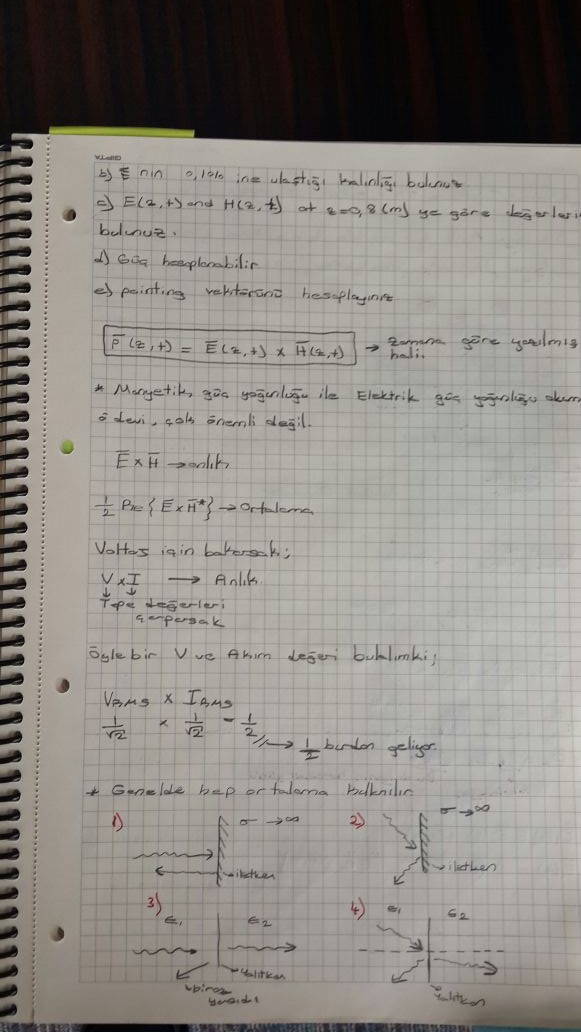 b) E nin 0,1% ine ulaştığı kalınlığı bulunuz
c) E(z,t) and H(z,t) at z=0,8(m) ye göre değerleri
bulunuz.
d) Güç hesaplanabilir
e) pointing vektörünü hesaplayınız
P(z,t) = E(z,t) x H(z,t) → zamana göre yazılmış
hali.
* Manyetik, güç yoğunluğu ile Elektrik güç yoğunluğu
ödevi, çok önemli değil.
E x H → anlık
1/2 Re{E x H*} → Ortalama
Voltaj için bakarsak;
V x I → Anlık
↓ ↓
Tepe değerleri
çarparsak
Öyle bir V ve Akım değeri bulalımki;
VRMS x IRMS
1/√2 x 1/√2 = 1/2 → 1/2 burdan geliyor.
* Genelde hep ortalama
1) σ → ∞ 2) σ → ∞
iletken iletken
3) ε1 ε2 4) ε1 ε2
yalıtkan
yalıtkan